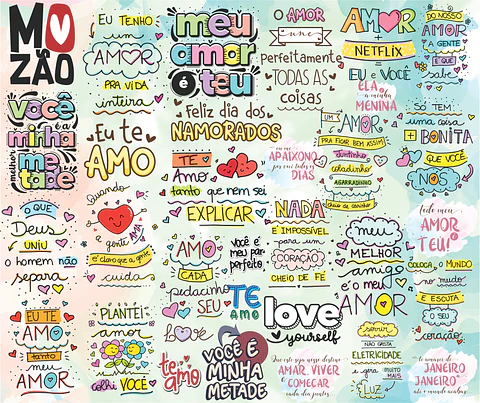 MO
ZÃO
EU TENHO
um
AMOR
PRA VIDA
inteira
meu
amor
é teu
Feliz dia dos
NAMORADOS
O AMOR
une
Perfeitamente
TODAS AS
coisas
AMOR
NETFLIX
EU e VOCÊ
DO NOSSO
AMOR
A GENTE
É QUE
sabe
você
é a
minha
melhor
metade
Eu te
AMO
ELA
a minha
MENINA
UM
AMOR
PRA FICAR BEM ASSIM
juntinho
coladinho
AGARRADINHO
cheio de carinho
SÓ TEM
uma coisa
+ BONITA
QUE VOCÊ
NÓS
TE
AMO
tanto que nem sei
EXPLICAR
APAIXONO
por você todos os
DIAS
O QUE
Deus
UNIU
o homem não
separa
Quando
a
gente AMA
é claro que a gente
cuida
NADA
É IMPOSSÍVEL
para um
CORAÇÃO
CHEIO DE FÉ
meu
MELHOR
amigo
é o meu
AMOR
todo meu
AMOR
é
TEU!
AMO
CADA
pedacinho
SEU
VOCÊ É
MEU PAR
PERFEITO
TE
AMO
COLOCA o MUNDO
no mudo
E ESCUTA
O SEU
coração
EU TE
AMO
tanto
meu
AMOR
PLANTEI
amor
colhi VOCÊ
Love
te
amo
VOCÊ É
MINHA
METADE
love
yourself
Que este seja nosso destino:
AMAR, VIVER
e COMEÇAR
cada dia juntos
sorrir
NÃO GASTA
ELETRICIDADE
e gera muito
MAIS
LUZ
te amarei de
JANEIRO
a JANEIRO
até o mundo acabar